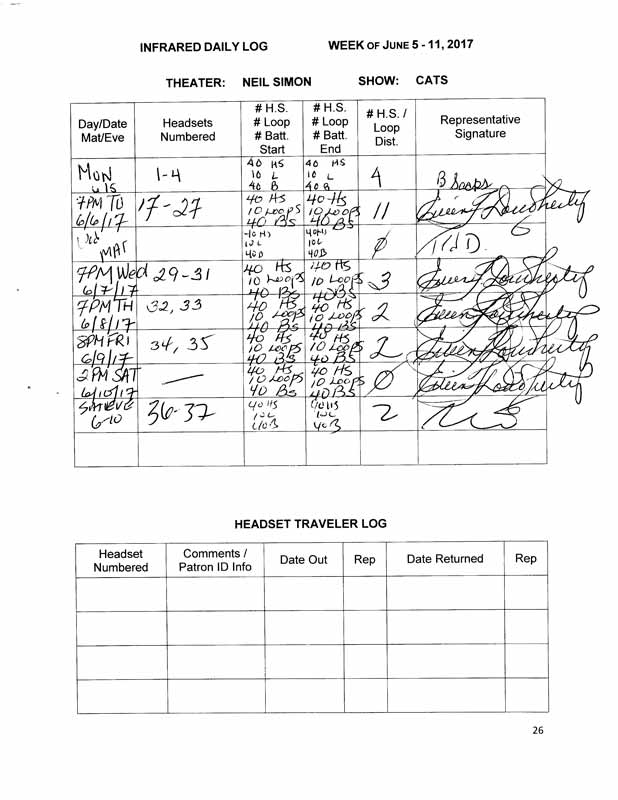 INFRARED DAILY LOG WEEK OF JUNE 5 - 11, 2017
THEATER: NEIL SIMON SHOW: CATS
Day/Date
Mat/Eve
Headsets
Numbered
# H.S.
# Loop
# Batt.
Start
# H.S.
# Loop
# Batt.
End
# H.S. /
Loop
Dist.
Representative
Signature
MON
6/5
1-4
40 HS
10 L
40 B
40 HS
10 L
40 B
4
7PM TU
6/6/17
17-27
40 HS
10 LOOPS
40 BS
40 HS
10 LOOPS
40 BS
11
Eileen Dougherty
Wed
MAT
40 HS
10 L
40 B
40 HS
10L
40B
0
7PM Wed
6/7/17
29-31
40 HS
10 LOOPS
40 BS
40 HS
10 LOOPS
40 BS
3
Eileen Dougherty
7PM TH
6/8/17
32, 33
40 HS
10 LOOPS
40 BS
40 HS
10 LOOPS
40 BS
2
Eileen Dougherty
8PM FRI
6/9/17
34, 35
40 HS
10 LOOPS
40 BS
40 HS
10 LOOPS
40 BS
2
Eileen Dougherty
2PM SAT
6/10/17
—
40 HS
10 LOOPS
40 BS
40 HS
10 LOOPS
40 BS
0
Eileen Dougherty
SAT EVE
6-10
36-37
40 HS
10L
40B
40 HS
10L
40B
2
HEADSET TRAVELER LOG
Headset
Numbered
Comments /
Patron ID Info
Date Out
Rep
Date Returned
Rep
26